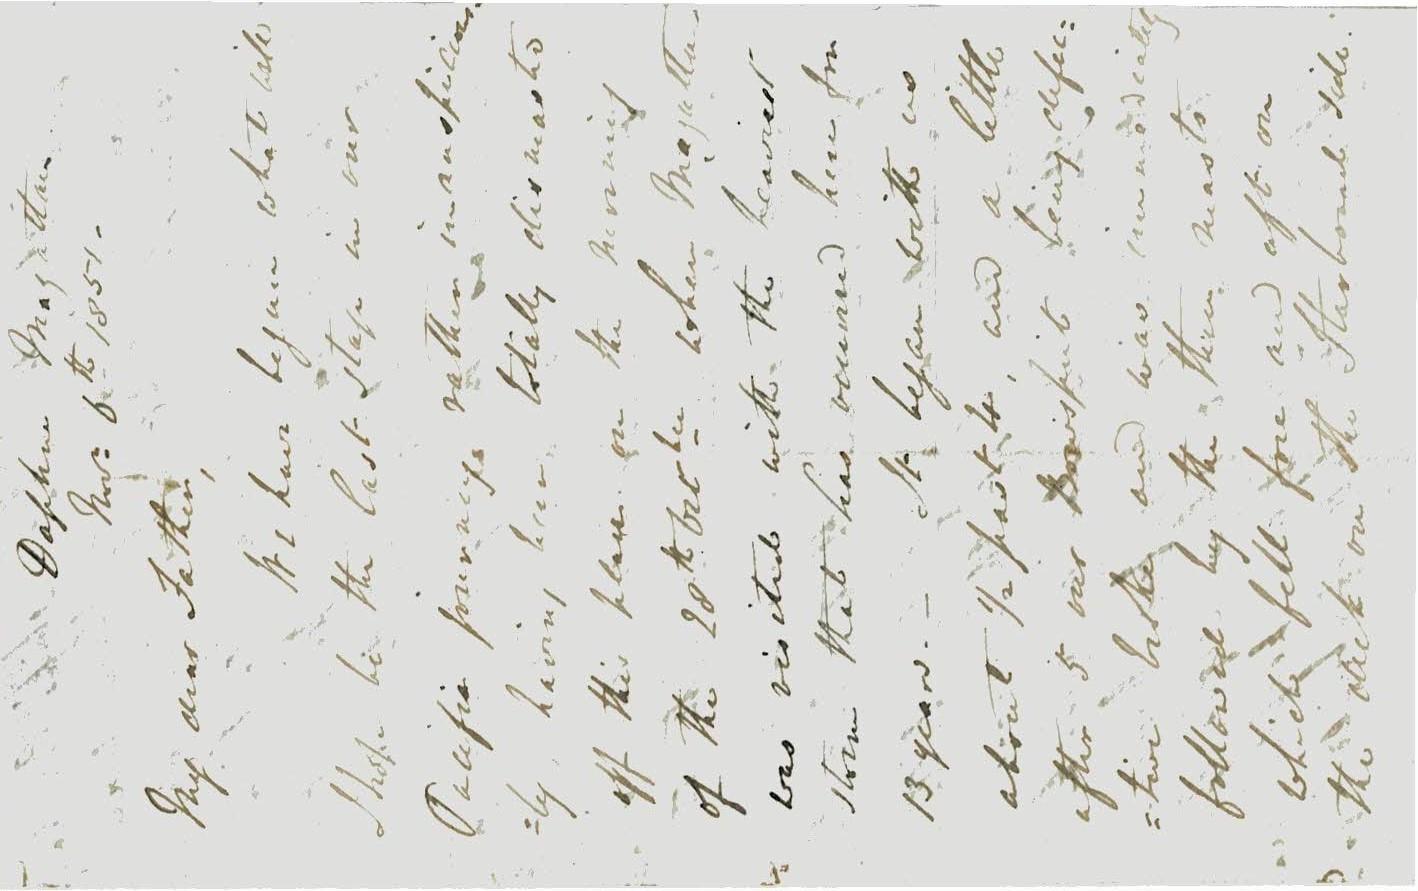 Daphne Mazatlan
Nov: 6th 1851.
My dear Father,
We have begun what
I hope be the last stage in our
Pacific journeys rather inauspicious
=ly having been totally dismasted
off this place on the morning
of the 28th October when Mazatlan
was visited with the heaviest
storm that has occurred here for
13 years. — It began with us
about 1/2 past 4, and a little
after 5 our bowsprit being defec=
=tive broke and was immediately
followed by the three masts
which fell fore and aft on
the deck on the Starboard side.